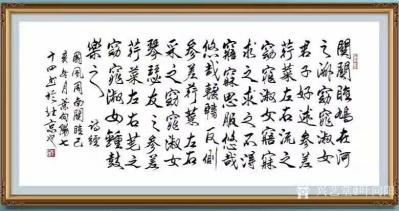 關關雎鳩在河
之洲窈窕淑女
君子好逑參差
荇菜左右流之
窈窕淑女寤寐
求之求之不得
寤寐思服悠哉
悠哉輾轉反側
參差荇菜左右
采之窈窕淑女
琴瑟友之參差
荇菜左右芼之
窈窕淑女鍾鼓
樂之 詩經
國風周南關雎己
亥冬月葉向陽七
十四 於北京
兴艺堂@叶向阳